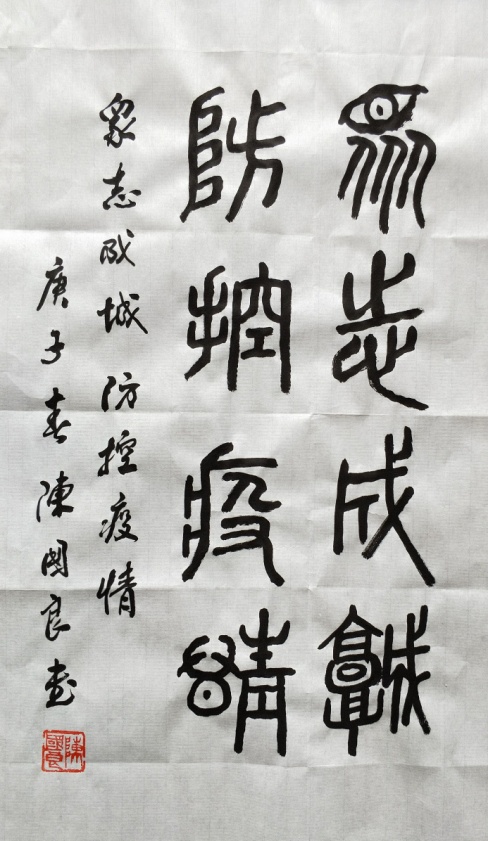 眾志成城
防控疫情
眾志成城防控疫情
庚子春陳國良書
陳國良